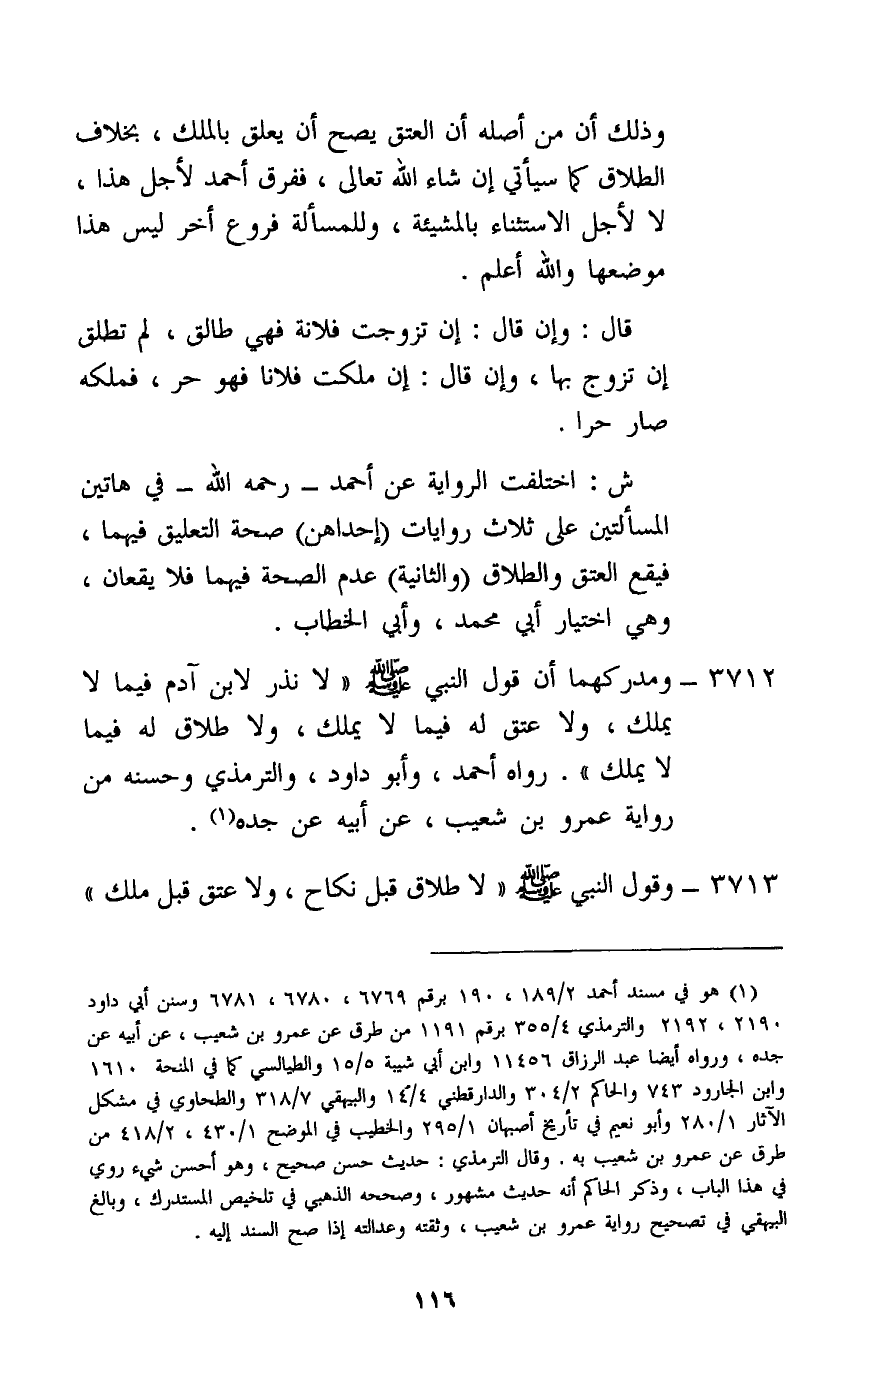 وذلك أن من أصله أن العتق يصح أن يعلق بالملك ، بخلاف
الطلاق كما سيأتي إن شاء الله تعالى ، ففرق أحمد لأجل هذا ،
لا لأجل الاستثناء بالمشيئة ، وللمسألة فروع أخر ليس هذا
موضعها والله أعلم .
قال : وإن قال : إن تزوجت فلانة فهي طالق ، لم تطلق
إن تزوج بها ، وإن قال : إن ملكت فلانا فهو حر ، فملكه
صار حرا .
ش : اختلفت الرواية عن أحمد ــ رحمه الله ــ في هاتين
المسألتين على ثلاث روايات (إحداهن) صحة التعليق فيهما ،
فيقع العتق والطلاق (والثانية) عدم الصحة فيهما فلا يقعان ،
وهي اختيار أبي محمد ، وأبي الخطاب .
٣٧١٢ ــ ومدركهما أن قول النبي ﷺ « لا نذر لابن آدم فيما لا
يملك ، ولا عتق له فيما لا يملك ، ولا طلاق له فيما
لا يملك » . رواه أحمد ، وأبو داود ، والترمذي وحسنه من
رواية عمرو بن شعيب ، عن أبيه عن جده(١) .
٣٧١٣ ــ وقول النبي ﷺ « لا طلاق قبل نكاح ، ولا عتق قبل ملك »
(١) هو في مسند أحمد ١٨٩/٢ ، ١٩٠ برقم ٦٧٦٩ ، ٦٧٨٠ ، ٦٧٨١ وسنن أبي داود
٢١٩٠ ، ٢١٩٢ والترمذي ٣٥٥/٤ برقم ١١٩١ من طرق عن عمرو بن شعيب ، عن أبيه عن
جده ، ورواه أيضا عبد الرزاق ١١٤٥٦ وابن أبي شيبة ١٥/٥ والطيالسي كما في المنحة ١٦١٠
وابن الجارود ٧٤٣ والحاكم ٣٠٤/٢ والدارقطني ١٤/٤ والبيهقي ٣١٨/٧ والطحاوي في مشكل
الآثار ٢٨٠/١ وأبو نعيم في تأريخ أصبهان ٢٩٥/١ والخطيب في الموضح ٤٣٠/١ ، ٤١٨/٢ من
طرق عن عمرو بن شعيب به . وقال الترمذي : حديث حسن صحيح ، وهو أحسن شيء روي
في هذا الباب ، وذكر الحاكم أنه حديث مشهور ، وصححه الذهبي في تلخيص المستدرك ، وبالغ
البيهقي في تصحيح رواية عمرو بن شعيب ، وثقته وعدالته إذا صح السند إليه .
١١٦